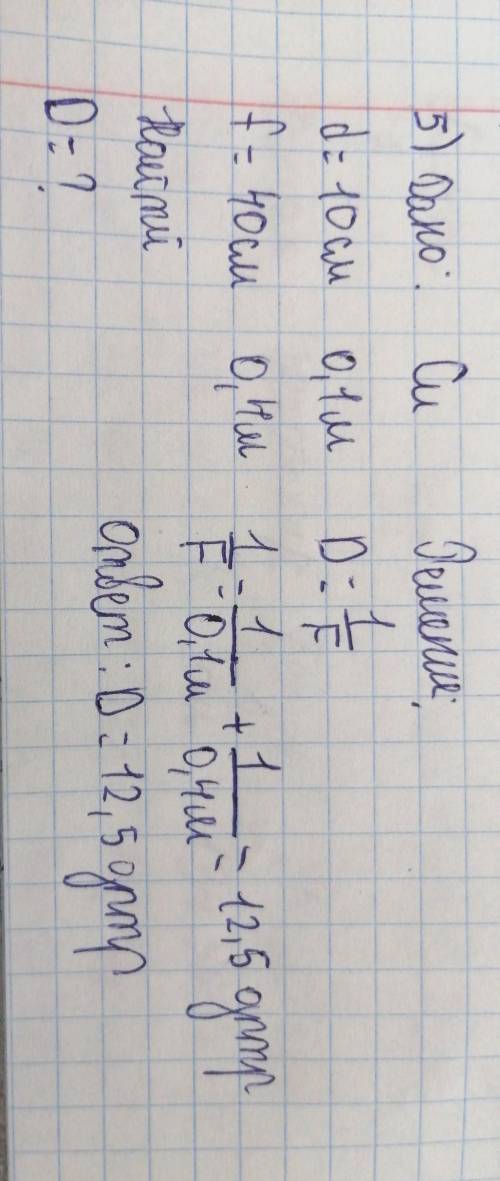 5) Дано: Си Решение:
d = 10см 0,1м D = 1/F
f = 40см 0,4м 1/F = 1/0,1м + 1/0,4м = 12,5 дптр
Найти
D = ?
Ответ: D = 12,5 дптр